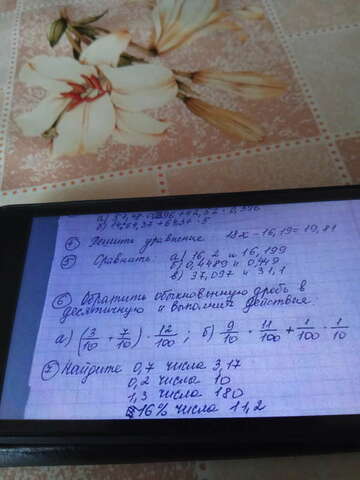 ④ Решить уравнение 18x - 16,19 = 19,81
⑤ Сравнить а) 16,2 и 16,199
б) 0,4489 и 0,449
в) 37,097 и 31,1
⑥ Обратить обыкновенную дробь в
десятичную и выполнить действие
а) (3/10 + 7/10) · 12/100 ; б) 9/10 · 11/100 + 1/100 · 1/10
⑦ Найдите 0,7 числа 3,17
0,2 числа 10
1,3 числа 180
16% числа 11,2